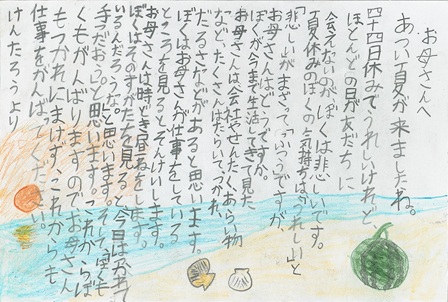 お母さんへ
あつい夏が来ましたね。
四十四日休みでうれしいけれど、
ほとんどの日が友だちに
会えないのがぼくは悲しいです。
夏休みのぼくの気持ちは「うれしい」と
「悲しい」がまざって「ふつう」ですが、
お母さんはどうですか。
ぼくが今まで生活してきて見た
お母さんは会社やせんたく、あらい物
など、たくさんはたらいてつかれ
たるさなどがあると思います。
ぼくはお母さんが仕事をしている
ところを見るとそんけいします。
お母さんは時どき昼ねをします。
ぼくはそのすがたを見ると「今日はつかれて
いるんだろうな。」と思います。そして「ぼくも
手つだおう。」と思います。これからぼ
くもがんばりますのでお母さん
もつかれにまけず、これからも
仕事をがんばってください。
けんたろうより